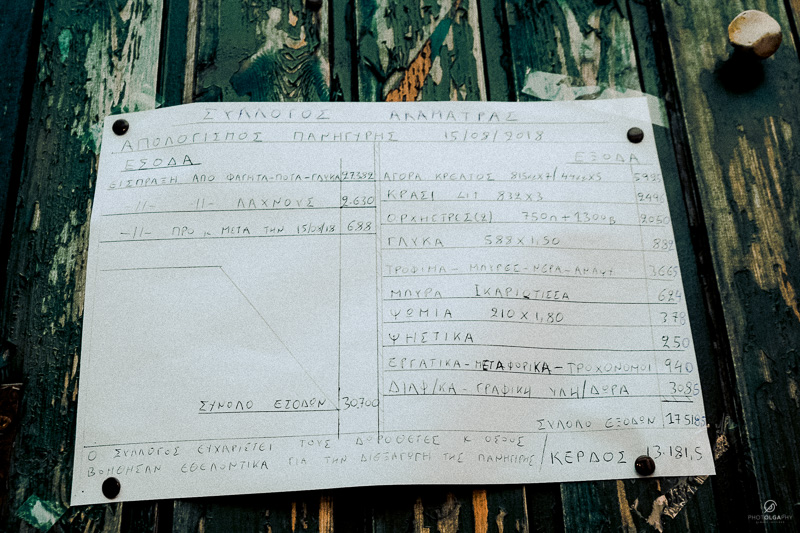 ΣΥΛΛΟΓΟΣ ΑΚΑΜΑΤΡΑΣ
ΑΠΟΛΟΓΙΣΜΟΣ ΠΑΝΗΓΥΡΗΣ 15/08/2018
ΕΣΟΔΑ
ΕΙΣΠΡΑΞΗ ΑΠΟ ΦΑΓΗΤΑ-ΠΟΤΑ-ΓΛΥΚΑ 27.382
-//- -//- ΛΑΧΝΟΥΣ 2.630
-//- ΠΡΟ κ ΜΕΤΑ ΤΗΝ 15/08/18 688
ΣΥΝΟΛΟ ΕΣΟΔΩΝ 30.700
ΕΞΟΔΑ
ΑΓΟΡΑ ΚΡΕΑΤΟΣ
ΚΡΑΣΙ LIT 832 x 3 2496
ΟΡΧΗΣΤΡΕΣ(2) 750Π + 1300Β 2050
ΓΛΥΚΑ 588 x 1,50 882
ΤΡΟΦΙΜΑ - ΜΠΥΡΕΣ - ΝΕΡΑ - ΑΝΑΨΥ 3665
ΜΠΥΡΑ ΙΚΑΡΙΩΤΙΣΣΑ 624
ΨΩΜΙΑ 210 x 1,80 378
ΨΗΣΤΙΚΑ 250
ΕΡΓΑΤΙΚΑ - ΜΕΤΑΦΟΡΙΚΑ - ΤΡΟΧΟΝΟΜΟΙ 940
ΔΙΑΦ/ΚΑ - ΓΡΑΦΙΚΗ ΥΛΗ/ΔΩΡΑ
ΣΥΝΟΛΟ ΕΞΟΔΩΝ
Ο ΣΥΛΛΟΓΟΣ ΕΥΧΑΡΙΣΤΕΙ ΤΟΥΣ ΔΩΡΟΘΕΤΕΣ κ ΟΣΟΥΣ
ΒΟΗΘΗΣΑΝ ΕΘΕΛΟΝΤΙΚΑ ΓΙΑ ΤΗΝ ΔΙΕΞΑΓΩΓΗ ΤΗΣ ΠΑΝΗΓΥΡΗΣ / ΚΕΡΔΟΣ 13.181,5
PHOTOLGAPHY